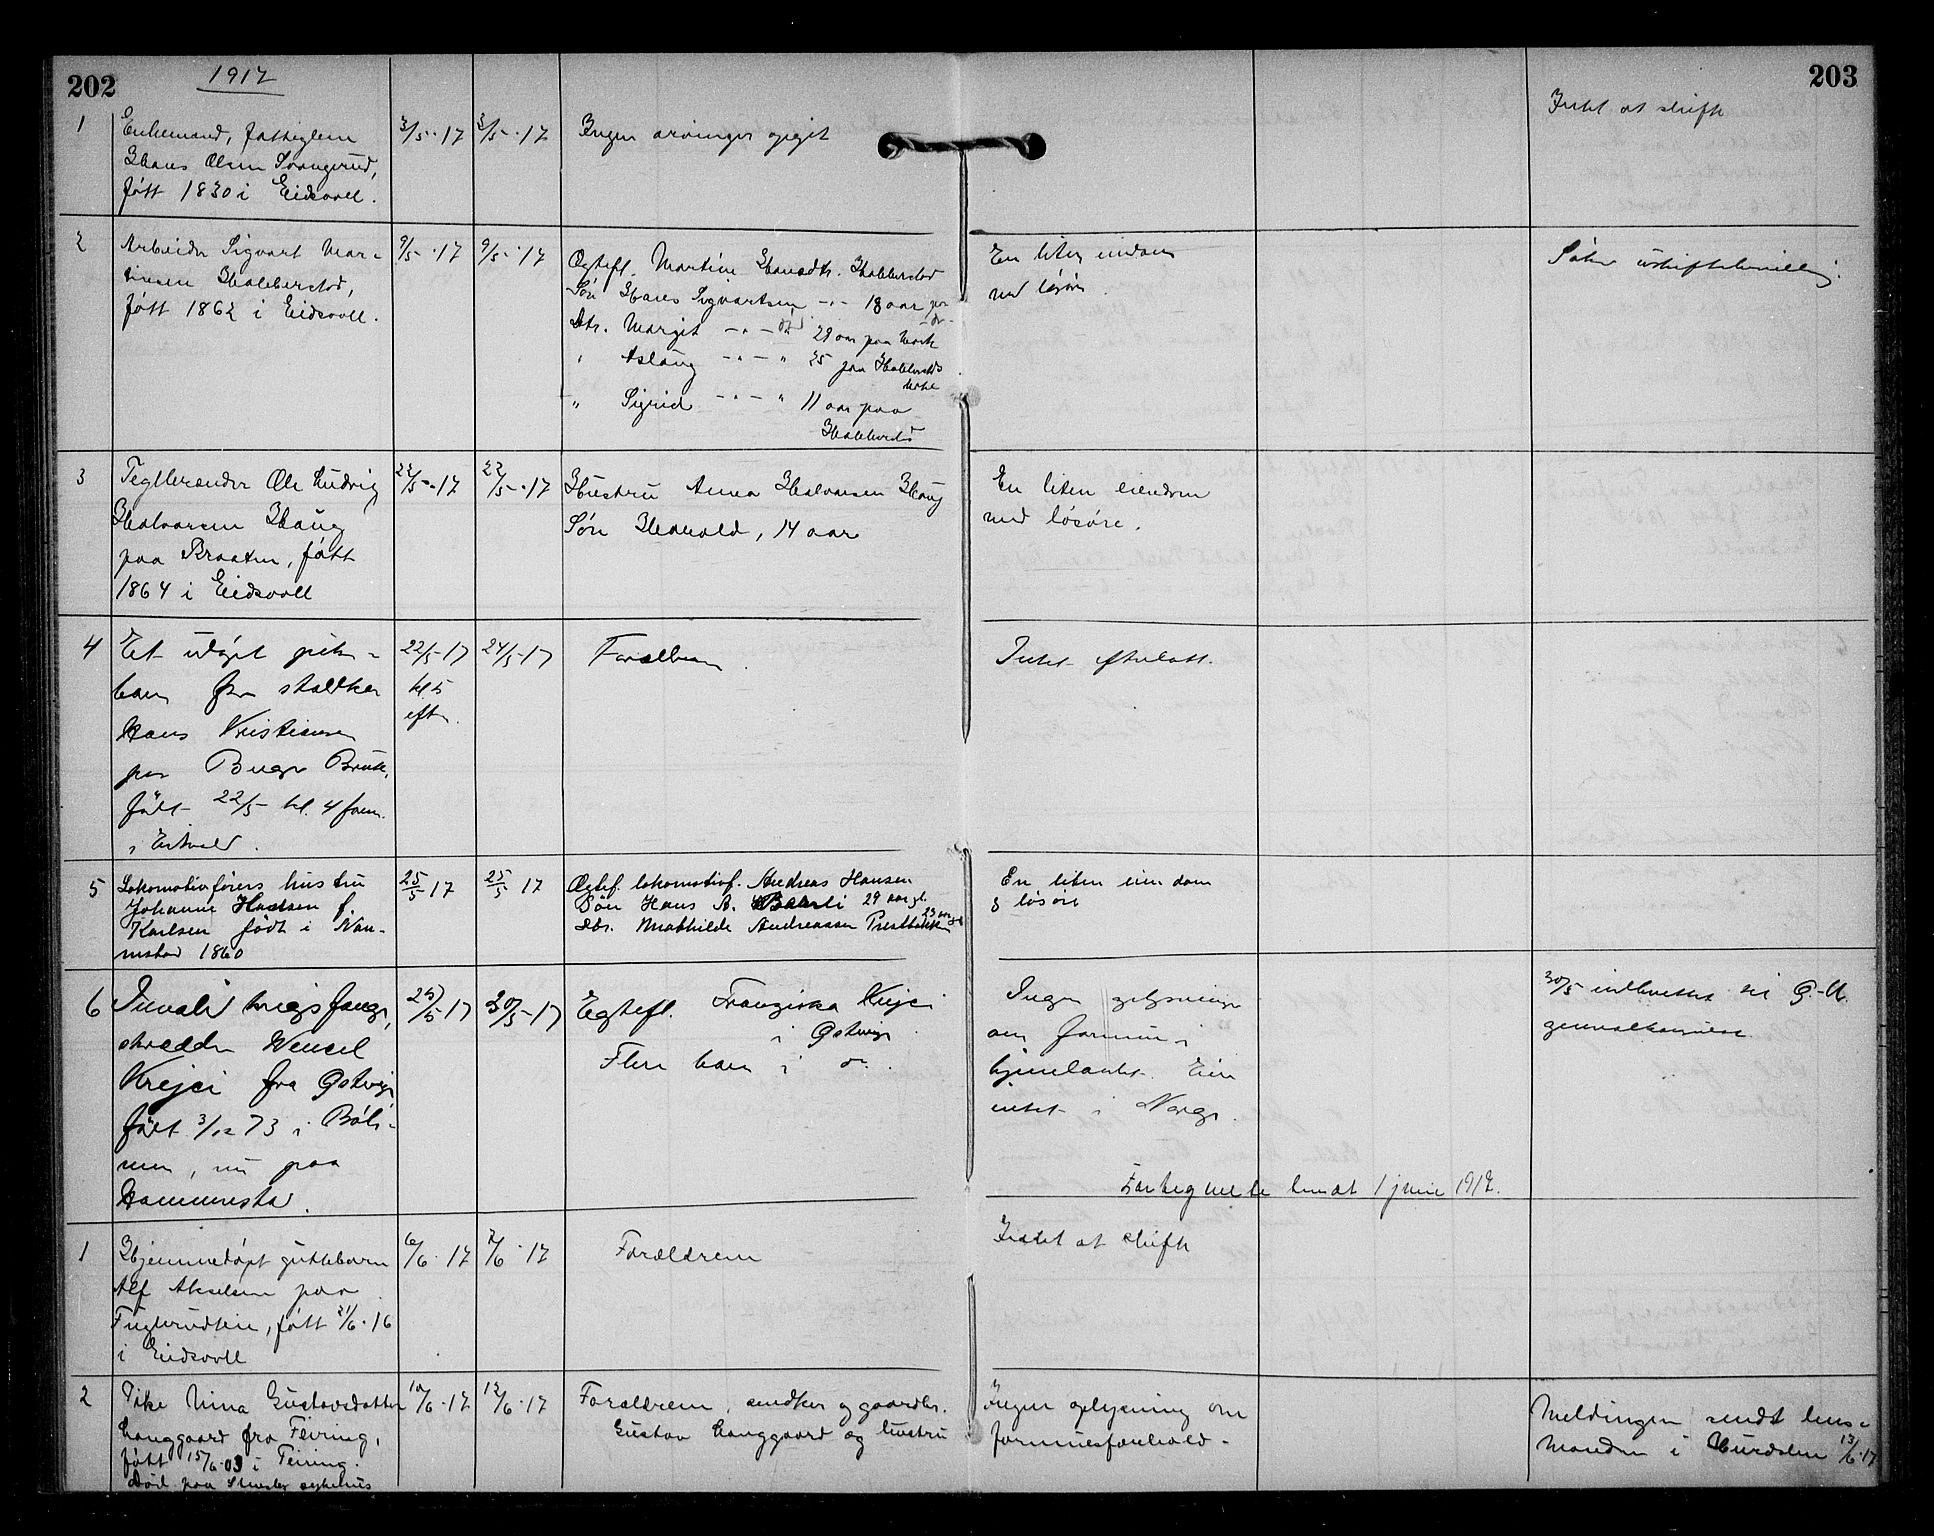 202
1917
203
1
Enkemand, fattiglem
Hans Olsen
født 1830 i Eidsvoll.
3/5.17
3/5.17
Ingen arvinger opgit
Intet at skifte
2
Arbeider Sigvart Mar-
tinsen Habberstad,
født 1862 i Eidsvoll.
9/5.17
9/5.17
Ægtef. Martine Hansdtr. Habberstad
Søn Hans Sigvartsen -"- 18 aar
Dtr. Margit -"- 29 aar paa
" Aslaug -"- " 25 paa Habberstad
" Sigrid -"- " 11 aar paa
Habberstad
En liten eiendom
med løsøre.
Søker uskiftebevilling.
3
Teglbrænder Ole Ludvig
Halvorsen Haug
paa Braaten, født
1864 i Eidsvoll
22/5.17
22/5.17
Hustru Anna Halvorsen Haug
Søn Harald, 14 aar
En liten eiendom
med løsøre.
4
Et udøpt pike-
barn fra
Hans Kristiansen
paa Brug,
født 22/5 kl. 4 form.
i Eidsvold.
22/5-17
kl. 5
eftm.
24/5-17
Forældrene.
Intet efterlatt.
5
Lokomotivførers hustru
Johanne Hansen f.
Karlsen født i Nan-
nestad 1860
25/5 17
25/5 17
Ægtef. lokomotivf. Andreas Hansen
Søn Hans A. 29 aar gl.
dtr. Mathilde Andreassen 23 aar gl
En liten eiendom
& løsøre
6
Invalid krigsfange,
skrædder Wensel
Krejci fra Østerrige
født 3/12 73 i Bøh-
men, nu paa
25/5 17
30/5-17
Egtefl. Franziska Krejci
i Østerrige
Flere barn i do.
Ingen oplysninger
om formue i
hjemlandet. Eier
intet i Norge.
30/5 indberettet til Ø.-U.
generalkonsulat.
Fortegnelse sendt 1 juni 1917.
1
Hjemmedøpt guttebarn
Alf Akselsen paa
født 21/6.16
i Eidsvoll
6/6.17
7/6.17
Forældrene
Intet at skifte
2
Pike Nina Gustavsdatter
Langgaard fra Feiring,
født 15/6.03 i Feiring.
Død paa sykehus
10/6.17
12/6.17
Forældrene, snedker og gaardbr.
Gustav Langgaard og hustru
Ingen oplysning om
formuesforhold.
Meldingen sendt lens-
manden i Hurdalen 13/6.17